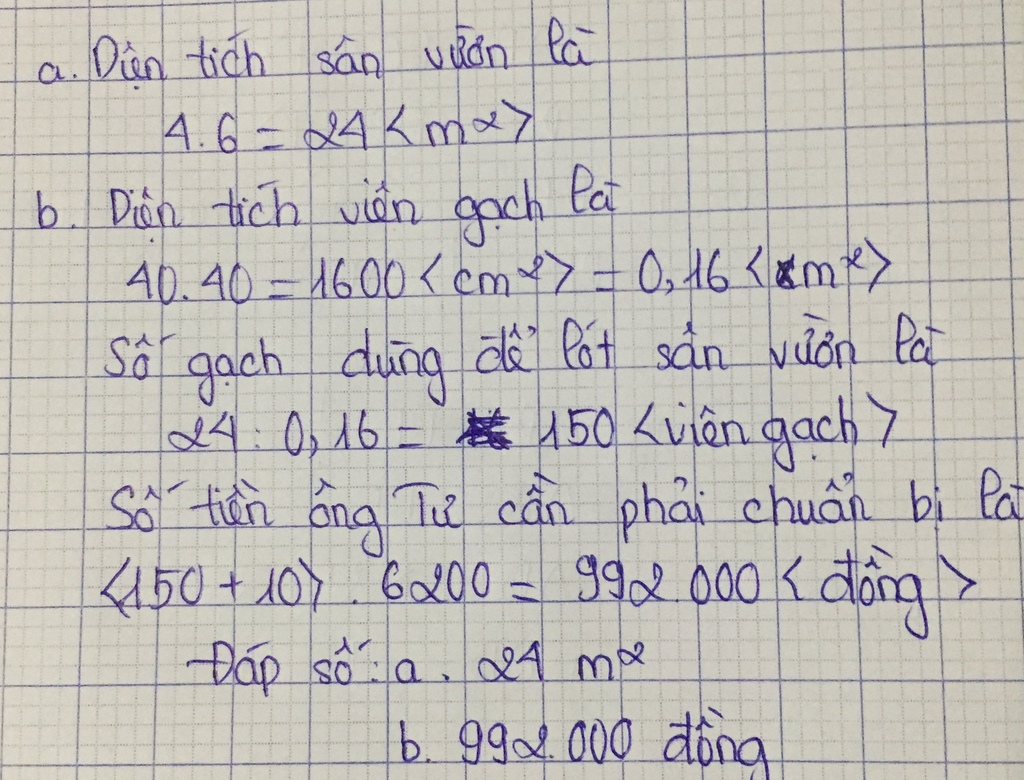 a. Diện tích sân vườn là
4.6 = 24 <m2>
b. Diện tích viên gạch là
40.40 = 1600 <cm²> = 0,16 <m²>
Số gạch dùng để lót sân vườn là
24 : 0,16 = 150 <viên gạch>
Số tiền ông Tư cần phải chuẩn bị là
<150 + 10> . 6200 = 992 000 <đồng>
Đáp số: a. 24 m²
b. 992.000 đồng